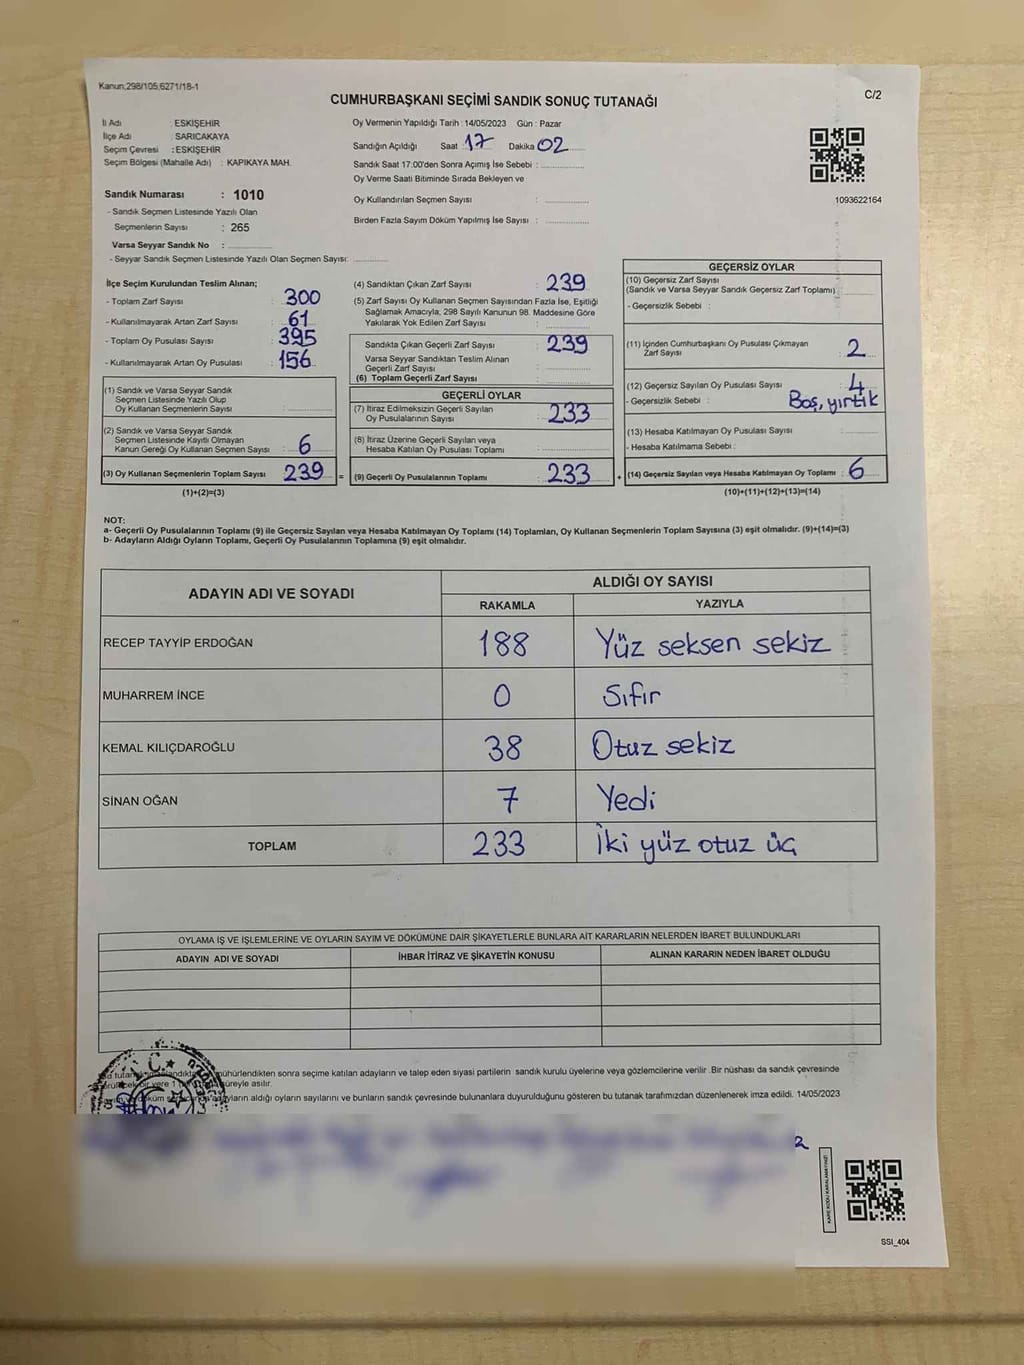 Kanun;298/105;6271/18-1
C/2
CUMHURBAŞKANI SEÇİMİ SANDIK SONUÇ TUTANAĞI
İl Adı : ESKİŞEHİR
İlçe Adı : SARICAKAYA
Seçim Çevresi : ESKİŞEHİR
Seçim Bölgesi (Mahalle Adı) : KAPIKAYA MAH.
Sandık Numarası : 1010
- Sandık Seçmen Listesinde Yazılı Olan
Seçmenlerin Sayısı : 265
Varsa Seyyar Sandık No :
- Seyyar Sandık Seçmen Listesinde Yazılı Olan Seçmen Sayısı:
Oy Vermenin Yapıldığı Tarih : 14/05/2023 Gün : Pazar
Sandığın Açıldığı Saat 17 Dakika 02
Sandık Saat 17:00'den Sonra Açımış İse Sebebi :
Oy Verme Saati Bitiminde Sırada Bekleyen ve
Oy Kullandırılan Seçmen Sayısı :
Birden Fazla Sayım Döküm Yapılmış İse Sayısı :
1093622164
İlçe Seçim Kurulundan Teslim Alınan;
- Toplam Zarf Sayısı : 300
- Kullanılmayarak Artan Zarf Sayısı : 61
- Toplam Oy Pusulası Sayısı : 395
- Kullanılmayarak Artan Oy Pusulası : 156
(1) Sandık ve Varsa Seyyar Sandık
Seçmen Listesinde Yazılı Olup
Oy Kullanan Seçmenlerin Sayısı :
(2) Sandık ve Varsa Seyyar Sandık
Seçmen Listesinde Kayıtlı Olmayan
Kanun Gereği Oy Kullanan Seçmen Sayısı : 6
(3) Oy Kullanan Seçmenlerin Toplam Sayısı : 239 =
(1)+(2)=(3)
(4) Sandıktan Çıkan Zarf Sayısı : 239
(5) Zarf Sayısı Oy Kullanan Seçmen Sayısından Fazla İse, Eşitliği
Sağlamak Amacıyla; 298 Sayılı Kanunun 98. Maddesine Göre
Yakılarak Yok Edilen Zarf Sayısı :
Sandıkta Çıkan Geçerli Zarf Sayısı : 239
Varsa Seyyar Sandıktan Teslim Alınan
Geçerli Zarf Sayısı :
(6) Toplam Geçerli Zarf Sayısı :
GEÇERLİ OYLAR
(7) İtiraz Edilmeksizin Geçerli Sayılan
Oy Pusulalarının Sayısı : 233
(8) İtiraz Üzerine Geçerli Sayılan veya
Hesaba Katılan Oy Pusulası Toplamı :
(9) Geçerli Oy Pusulalarının Toplamı : 233 +
GEÇERSİZ OYLAR
(10) Geçersiz Zarf Sayısı
(Sandık ve Varsa Seyyar Sandık Geçersiz Zarf Toplamı) :
- Geçersizlik Sebebi :
(11) İçinden Cumhurbaşkanı Oy Pusulası Çıkmayan
Zarf Sayısı : 2
(12) Geçersiz Sayılan Oy Pusulası Sayısı : 4
- Geçersizlik Sebebi : Boş, yırtık
(13) Hesaba Katılmayan Oy Pusulası Sayısı :
- Hesaba Katılmama Sebebi :
(14) Geçersiz Sayılan veya Hesaba Katılmayan Oy Toplamı : 6
(10)+(11)+(12)+(13)=(14)
NOT:
a- Geçerli Oy Pusulalarının Toplamı (9) ile Geçersiz Sayılan veya Hesaba Katılmayan Oy Toplamı (14) Toplamları, Oy Kullanan Seçmenlerin Toplam Sayısına (3) eşit olmalıdır. (9)+(14)=(3)
b- Adayların Aldığı Oyların Toplamı, Geçerli Oy Pusulalarının Toplamına (9) eşit olmalıdır.
ADAYIN ADI VE SOYADI ALDIĞI OY SAYISI
RAKAMLA YAZIYLA
RECEP TAYYİP ERDOĞAN 188 Yüz seksen sekiz
MUHARREM İNCE 0 Sıfır
KEMAL KILIÇDAROĞLU 38 Otuz sekiz
SİNAN OĞAN 7 Yedi
TOPLAM 233 İki yüz otuz üç
OYLAMA İŞ VE İŞLEMLERİNE VE OYLARIN SAYIM VE DÖKÜMÜNE DAİR ŞİKAYETLERLE BUNLARA AİT KARARLARIN NELERDEN İBARET BULUNDUKLARI
ADAYIN ADI VE SOYADI İHBAR İTİRAZ VE ŞİKAYETİN KONUSU ALINAN KARARIN NEDEN İBARET OLDUĞU
mühürlendikten sonra seçime katılan adayların ve talep eden siyasi partilerin sandık kurulu üyelerine veya gözlemcilerine verilir .Bir nüshası da sandık çevresinde
süreyle asılır.
adayların aldığı oyların sayılarını ve bunların sandık çevresinde bulunanlara duyurulduğunu gösteren bu tutanak tarafımızdan düzenlenerek imza edildi. 14/05/2023
KARE KODU KARALAMAYINIZ!
SSI_404